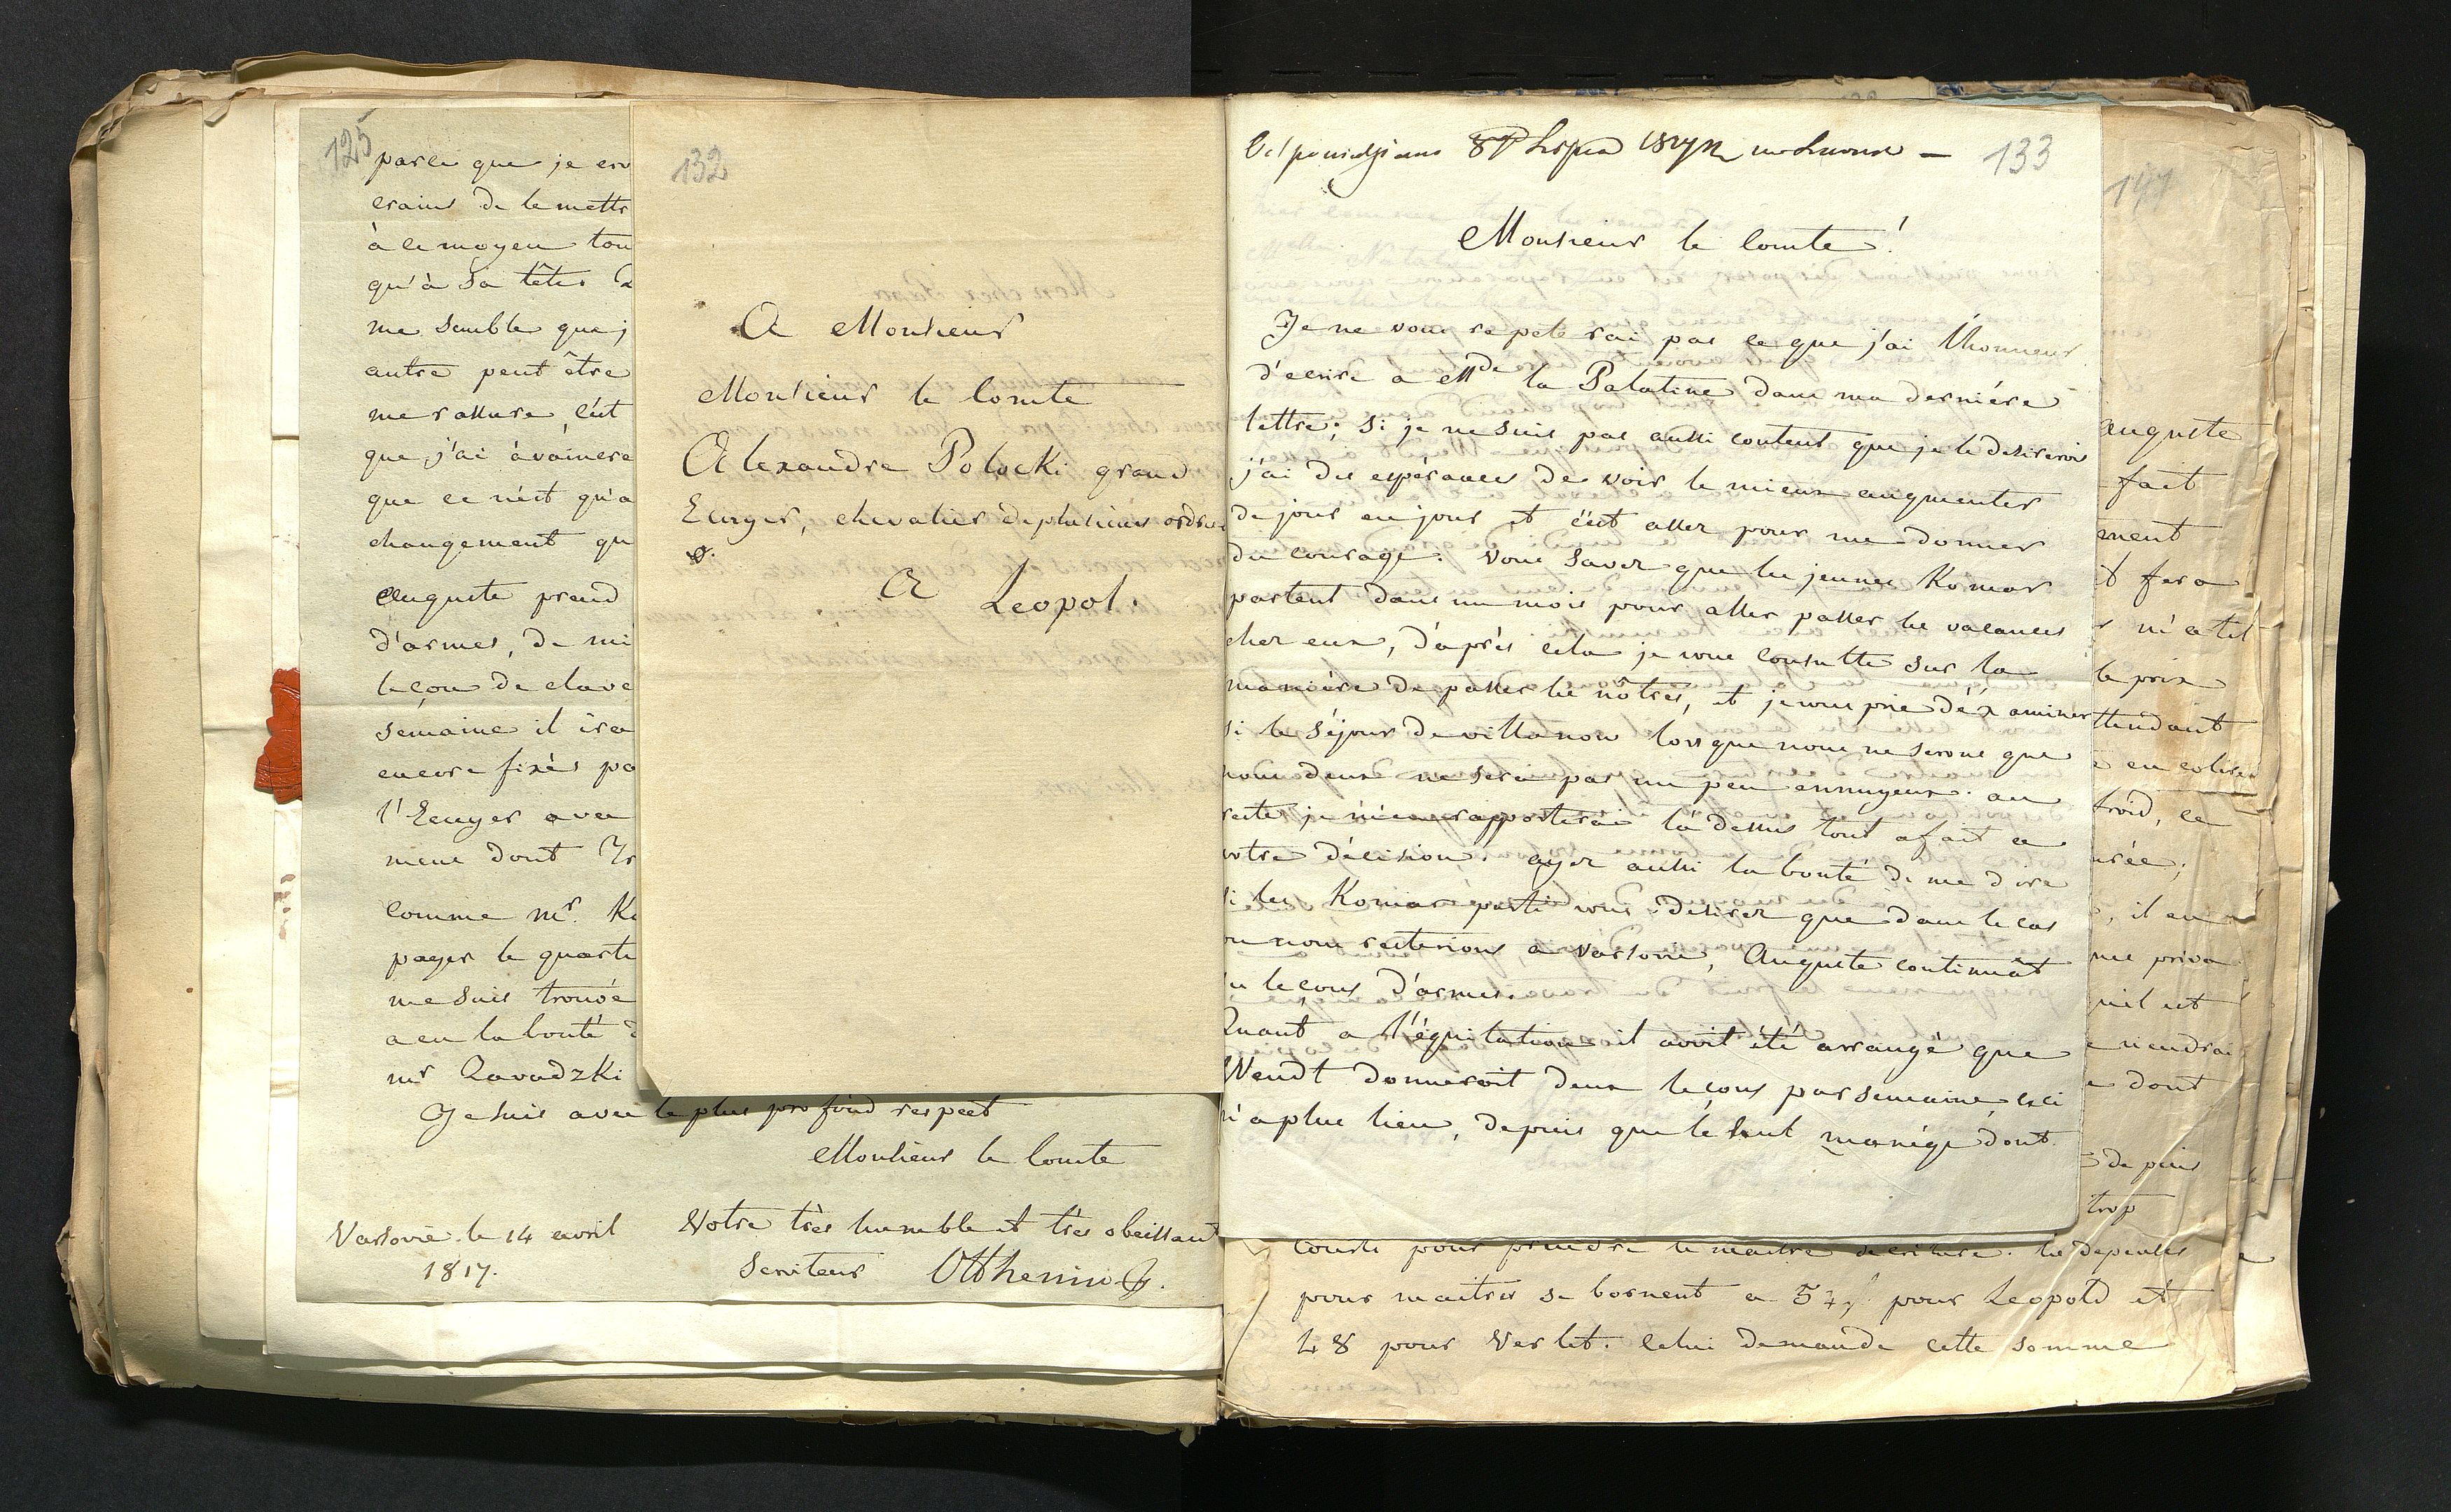 125
parce que je
crains de le mettr
à ce moyen tou
qu'à sa tête
me semble que j
autre peut être
me rassure, c'est
que j'ai à vaincre
que ce n'est qu'a
changement qu
Auguste prend
d'armes, de mi
leçon de clave
semaine il ira
encore fixés pa
l'Ecuyer avec
mene dont
comme mr. Ko
payer le quarti
me suis trouvé
a eu la bonté d
mr Zavadzki
Je suis avec le plus profond respect
Monsieur le Comte
Votre très humble et très obeissant
Serviteur
Varsovie le 14 avril
1817.
132
A Monsieur
Monsieur le Comte
Alexandre Potocki grand
Ecuyer, chevalier de plusieurs ordres
A Leopol.
133
Monsieur le Comte!
Je ne vous repeterai pas ce que j'ai l'honneur
d'ecrire a Mde la Palatine dans ma derniére
lettre; si je ne suis pas aussi content que je le desirerois
j'ai des espérances de voir le mieux augmenter
de jour en jour et c'est assez pour me donner
du courage. Vous savez que les jeunes Komar
partent dans un mois pour aller passer les vacances
chez eux, d'aprés cela je vous consulte sur la
maniére de passer les nôtres, et je vous prie d'éxaminer
si le séjour de villanow lorsque nous ne serons que
nous deux ne sera pas un peu ennuyeux. au
reste je m'en rapporterai là dessus tout a fait a
votre décision. ayez aussi la bonté de me dire
si les Komar parti vous desirez que dans le cas
ou nous resterions a Varsovie, Auguste continuât
leçons d'armes.
Quant a l'équitation il avoit été arrangé que
Wendt donneroit deux leçons par semaine, ceci
n'a plus lieu, depuis que le seul manége dont
141
Auguste
fait
ement
t fera
m'a t'il
le prix
ttendant
en
froid, ce
urée;
, il en
me priva
qu'il est
viendrai
dont
depuis
trop
courts pour prendre le maitre decriture. les depenses
pour maitres se bornent a pour Leopold et
48 pour Verlet. Celui demande cette somme